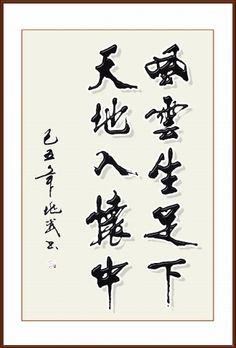 風雲生足下
天地入懷中
己丑年地武書